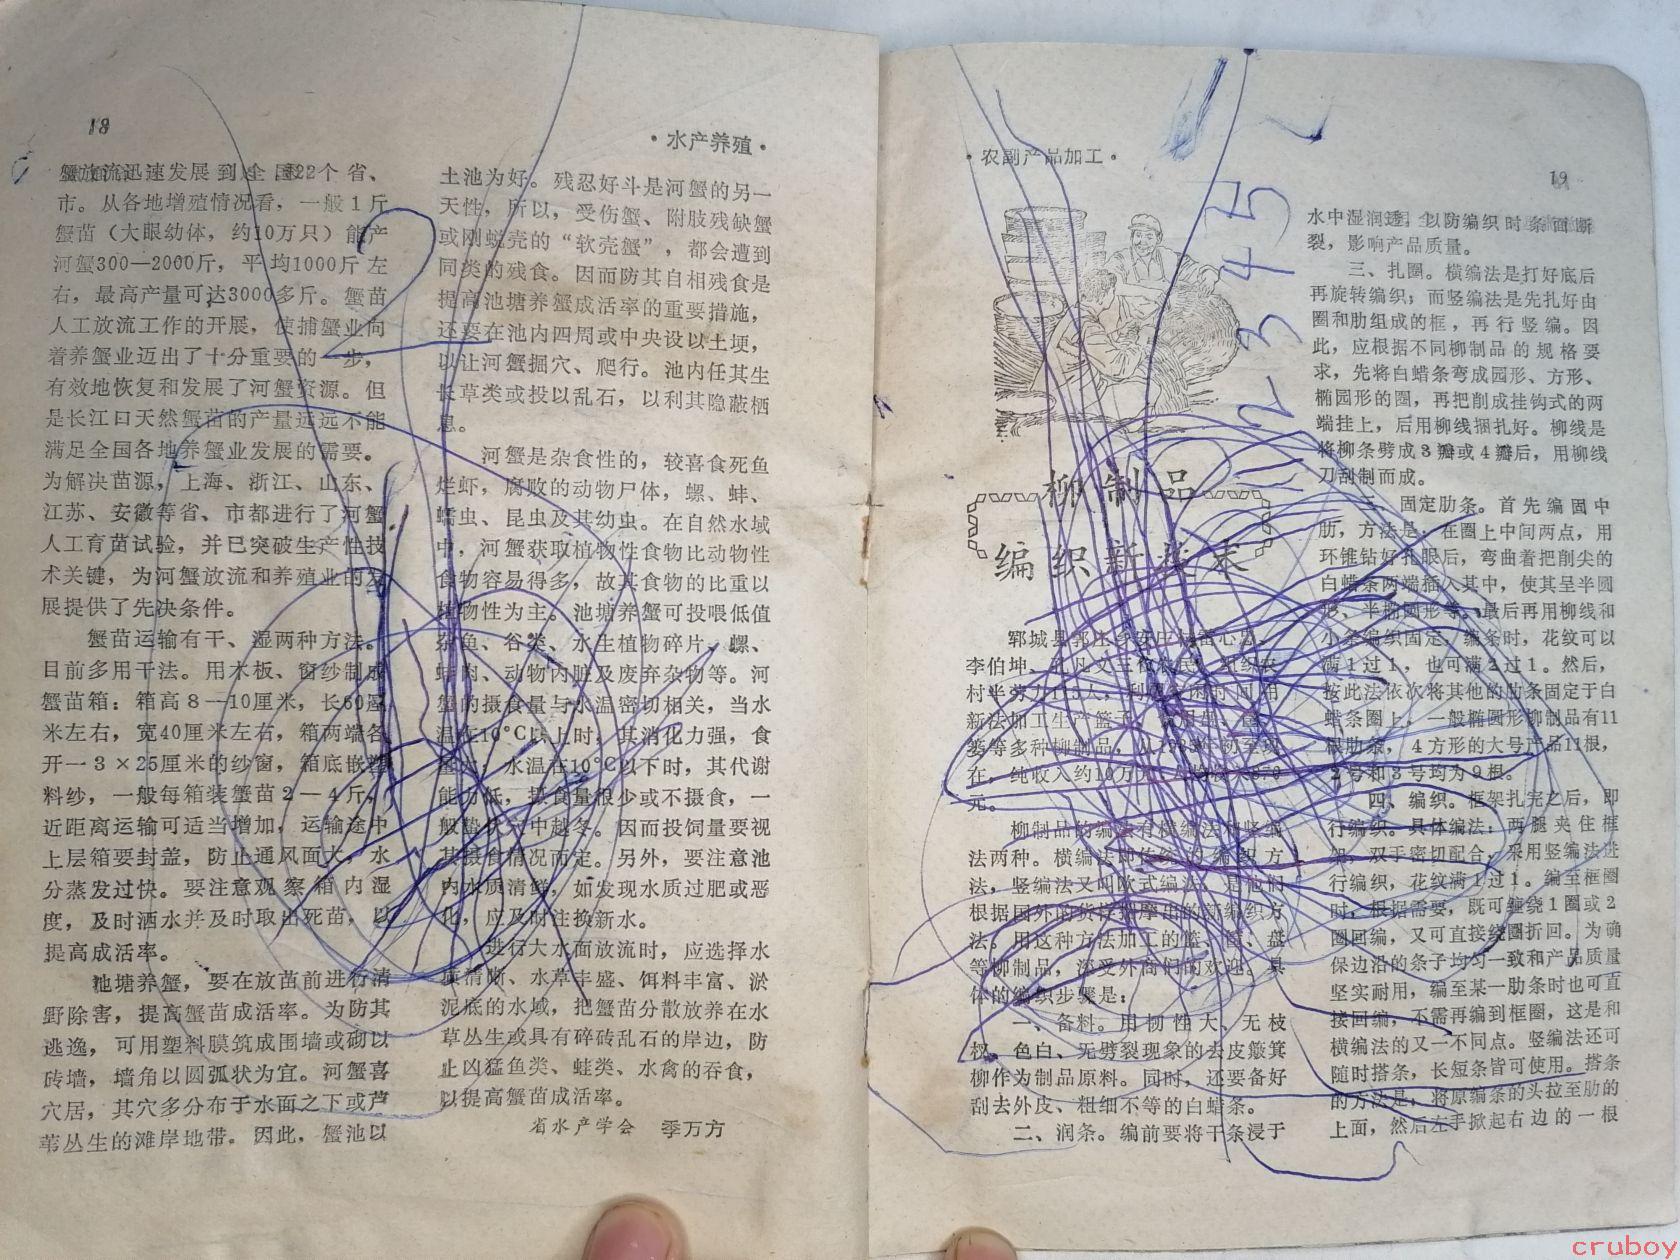 18
·水产养殖·
蟹放流迅速发展到全国22个省、
市。从各地增殖情况看，一般1斤
蟹苗（大眼幼体，约10万只）能产
河蟹300—2000斤，平均1000斤左
右，最高产量可达3000多斤。蟹苗
人工放流工作的开展，使捕蟹业向
着养蟹业迈出了十分重要的一步，
有效地恢复和发展了河蟹资源。但
是长江口天然蟹苗的产量远远不能
满足全国各地养蟹业发展的需要。
为解决苗源，上海、浙江、山东、
江苏、安徽等省、市都进行了河蟹
人工育苗试验，并已突破生产性技
术关键，为河蟹放流和养殖业的发
展提供了先决条件。
蟹苗运输有干、湿两种方法。
目前多用干法。用木板、窗纱制成
蟹苗箱：箱高8—10厘米，长60厘
米左右，宽40厘米左右，箱两端各
开一3×25厘米的纱窗，箱底嵌塑
料纱，一般每箱装蟹苗2—4斤，
近距离运输可适当增加，运输途中
上层箱要封盖，防止通风面大，水
分蒸发过快。要注意观察箱内湿
度，及时洒水并及时取出死苗，以
提高成活率。
池塘养蟹，要在放苗前进行清
野除害，提高蟹苗成活率。为防其
逃逸，可用塑料膜筑成围墙或砌以
砖墙，墙角以圆弧状为宜。河蟹喜
穴居，其穴多分布于水面之下或芦
苇丛生的滩岸地带。因此，蟹池以
土池为好。残忍好斗是河蟹的另一
天性，所以，受伤蟹、附肢残缺蟹
或刚蜕壳的“软壳蟹”，都会遭到
同类的残食。因而防其自相残食是
提高池塘养蟹成活率的重要措施，
还要在池内四周或中央设以土埂，
以让河蟹掘穴、爬行。池内任其生
长草类或投以乱石，以利其隐蔽栖
息。
河蟹是杂食性的，较喜食死鱼
烂虾，腐败的动物尸体，螺、蚌、
蠕虫、昆虫及其幼虫。在自然水域
中，河蟹获取植物性食物比动物性
食物容易得多，故其食物的比重以
植物性为主。池塘养蟹可投喂低值
杂鱼、谷类、水生植物碎片、螺、
蚌肉、动物内脏及废弃杂物等。河
蟹的摄食量与水温密切相关，当水
温在10°C以上时，其消化力强，食
量大；水温在10°C以下时，其代谢
能力低，摄食量很少或不摄食，一
般蛰伏穴中越冬。因而投饲量要视
其摄食情况而定。另外，要注意池
内水质清鲜，如发现水质过肥或恶
化，应及时注换新水。
进行大水面放流时，应选择水
质清晰、水草丰盛、饵料丰富、淤
泥底的水域，把蟹苗分散放养在水
草丛生或具有碎砖乱石的岸边，防
止凶猛鱼类、蛙类、水禽的吞食，
以提高蟹苗成活率。
省水产学会 季万方
2
·农副产品加工·
19
2 3 4 5
柳制品
编织新技术
郓城县郭庄乡
李伯坤、
村半劳力
新法加工生产篮子、
篓等多种柳制品，从
在，纯收入约10万
元。
柳制品的编法有横编法和竖编
法两种。横编法即传统的编织方
法，竖编法又叫欧式编法，是他们
根据国外的货样揣摩出的新编织方
法。用这种方法加工的篮、筐、盘
等柳制品，深受外商们的欢迎。具
体的编织步骤是：
一、备料。用韧性大、无枝
杈、色白、无劈裂现象的去皮簸箕
柳作为制品原料。同时，还要备好
刮去外皮、粗细不等的白蜡条。
二、润条。编前要将干条浸于
水中湿润透，以防编织时条面断
裂，影响产品质量。
三、扎圈。横编法是打好底后
再旋转编织；而竖编法是先扎好由
圈和肋组成的框，再行竖编。因
此，应根据不同柳制品的规格要
求，先将白蜡条弯成园形、方形、
椭园形的圈，再把削成挂钩式的两
端挂上，后用柳线捆扎好。柳线是
将柳条劈成3瓣或4瓣后，用柳线
刀刮制而成。
三、固定肋条。首先编固中
肋，方法是：在圈上中间两点，用
环锥钻好扎眼后，弯曲着把削尖的
白蜡条两端插入其中，使其呈半圆
形、半椭圆形等。最后再用柳线和
小条编织固定，编条时，花纹可以
满1过1，也可满2过1。然后，
按此法依次将其他的肋条固定于白
蜡条圈上，一般椭圆形柳制品有11
根肋条，4方形的大号产品11根，
2号和3号均为9根。
四、编织。框架扎完之后，即
行编织。具体编法：两腿夹住框
架，双手密切配合，采用竖编法进
行编织，花纹满1过1。编至框圈
时，根据需要，既可缠绕1圈或2
圈回编，又可直接绕圈折回。为确
保边沿的条子均匀一致和产品质量
坚实耐用，编至某一肋条时也可直
接回编，不需再编到框圈，这是和
横编法的又一不同点。竖编法还可
随时搭条，长短条皆可使用。搭条
的方法是：将原编条的头拉至肋的
上面，然后左手掀起右边的一根
cruboy